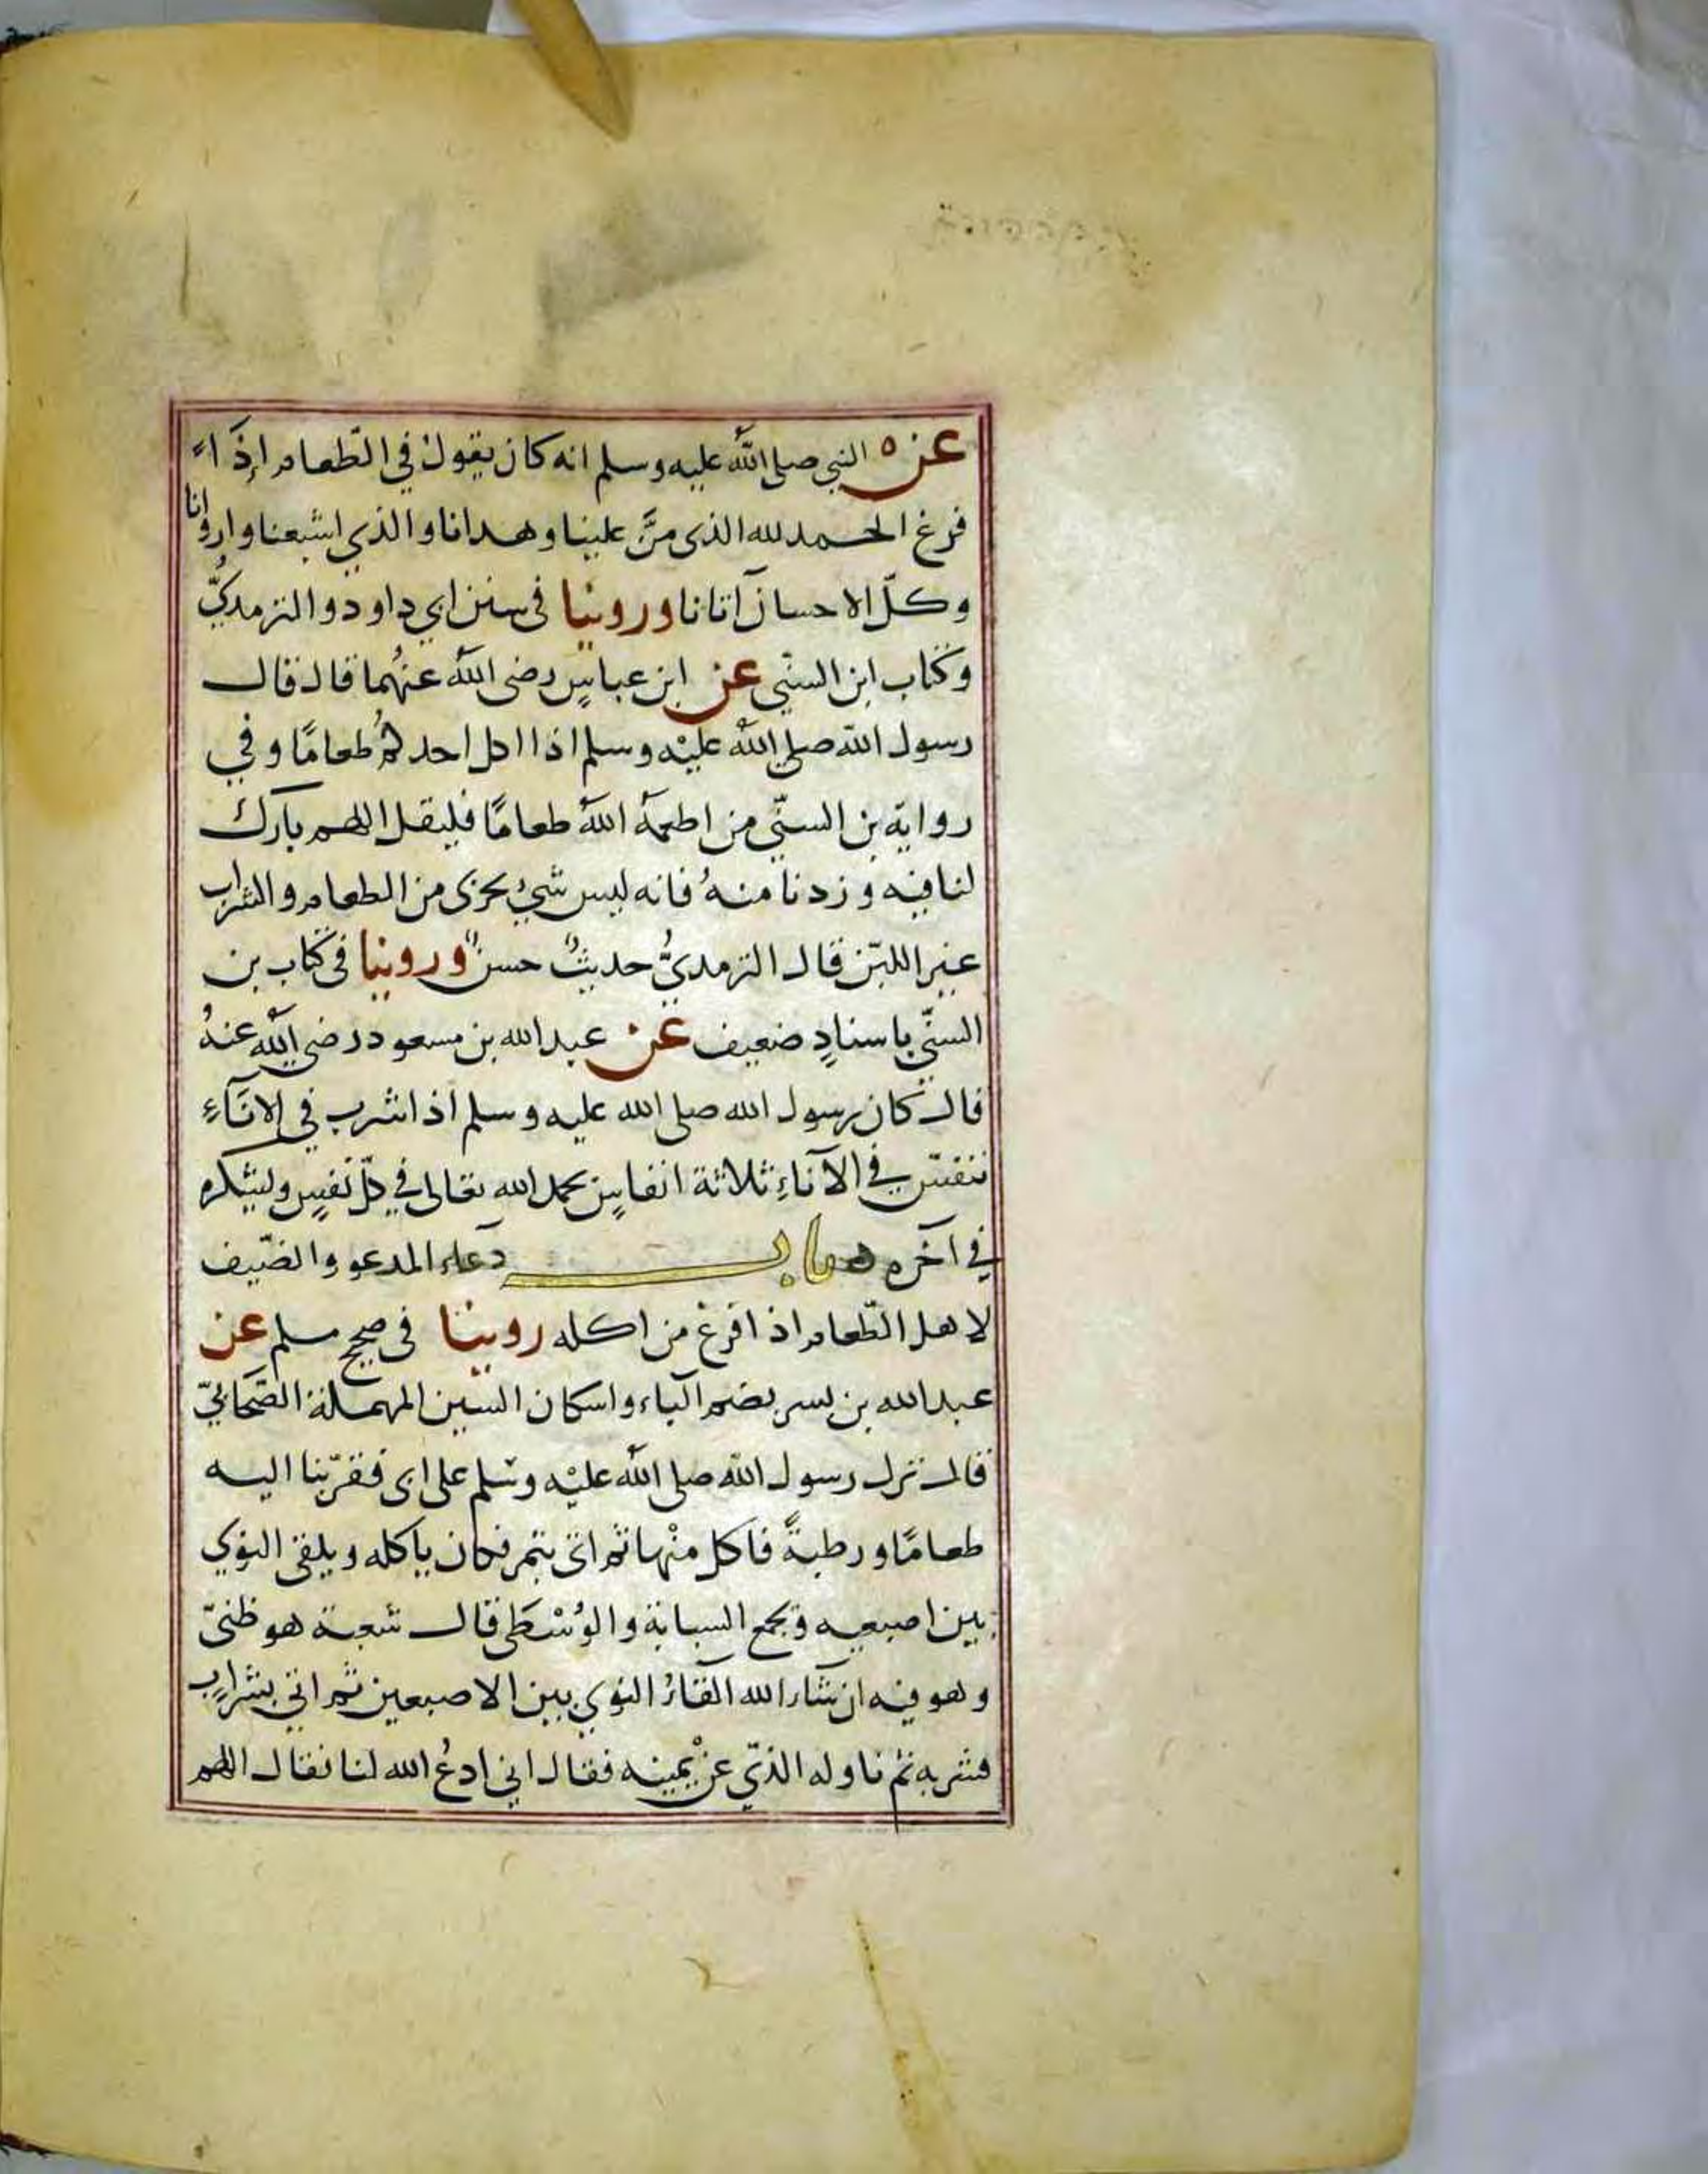 عن ه النبي صلى الله عليه وسلم انه كان يقول في الطّعام اِذَا ء
فرغ الحمد لله الذى منَّ علينا وهدانا والذي اشبعنا واروانا
وكلّ الاحسان آتانا وروينا فى سنن ابي داود والترمديُّ
وكتاب ابن السنّي عن ابن عباسٍ رضى الله عنهُما قال قال
رسول الله صلى الله عليْه وسلم اذا اكل احدكمُ طعامًا وفي
رواية بن السنّي من اطعمهُ اللهُ طعامًا فليقل اللهم بارك
لنا فيه وزدنا منهُ فانه ليس شيءُ يجزى من الطعام والشراب
غير اللبّن قال الترمديُّ حديثٌ حسنٌ وروينا فى كتاب بن
السنّي باسنادٍ ضعيف عن عبد الله بن مسعود رضى الله عنهُ
قال كان رسول الله صلى الله عليه وسلم اذا شرب في الانَآءِ
تنفسّ في الآناءِ ثلاثة انفاسٍ يحمد الله تعالى في كلّ نَفَسٍ وليشكره
في آخره باب دعاء المدعو والضّيف
لاهل الطّعام اذا فرغ من اكله روينا فى صحيح مسلم عن
عبد الله بن بسر بضم الباء واسكان السين المهملة الصّحابيّ
قال نزل رسول الله صلى الله عليْه وسلم على ابى فقرّبنا اليه
طعامًا ورطبةً فاكل منْها ثم اتى بتمر فكان ياكله ويلقى النوي
بين اصبعيه ويجمع السبابة والوُسْطَى قال شعبة هو ظنىّ
وهو فيه ان شاء الله القاءُ النوي بين الاصبعين ثم اتي بشرابٍ
فشربه ثم ناوله الذّي عنْ يمينه فقال ابي ادعُ الله لنا فقال اللهم